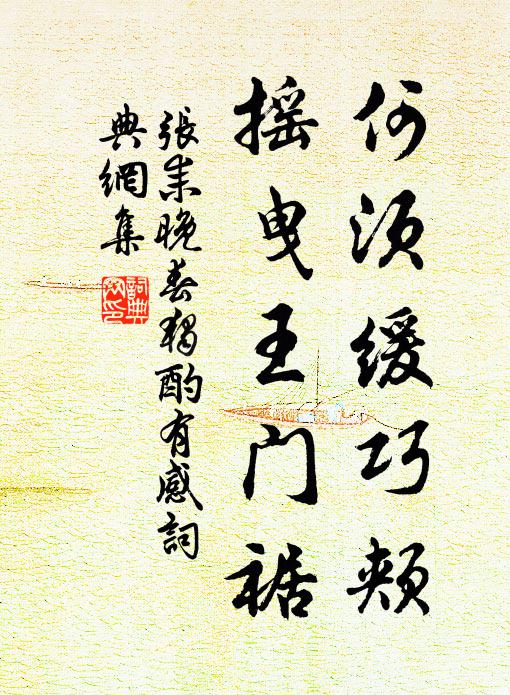 何须缓巧颊
摇曳王门裾
张耒晚春独酌有感词
典网集
词典
网印